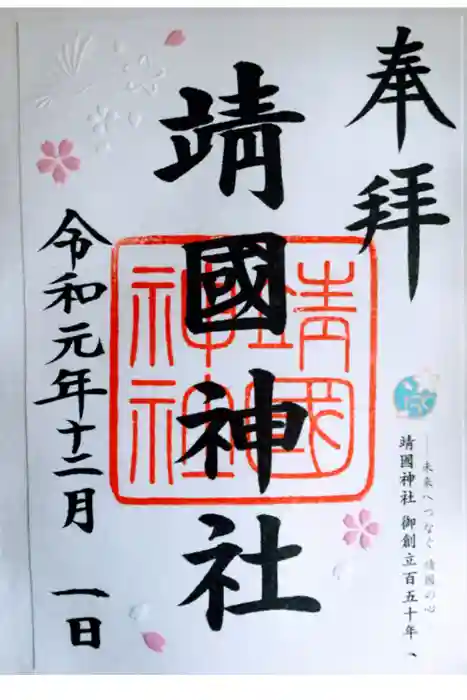 奉拝
靖國神社
靖國
神社
令和元年十二月 一日
―未来へつなぐ 靖國の心
靖國神社 御創立百五十年